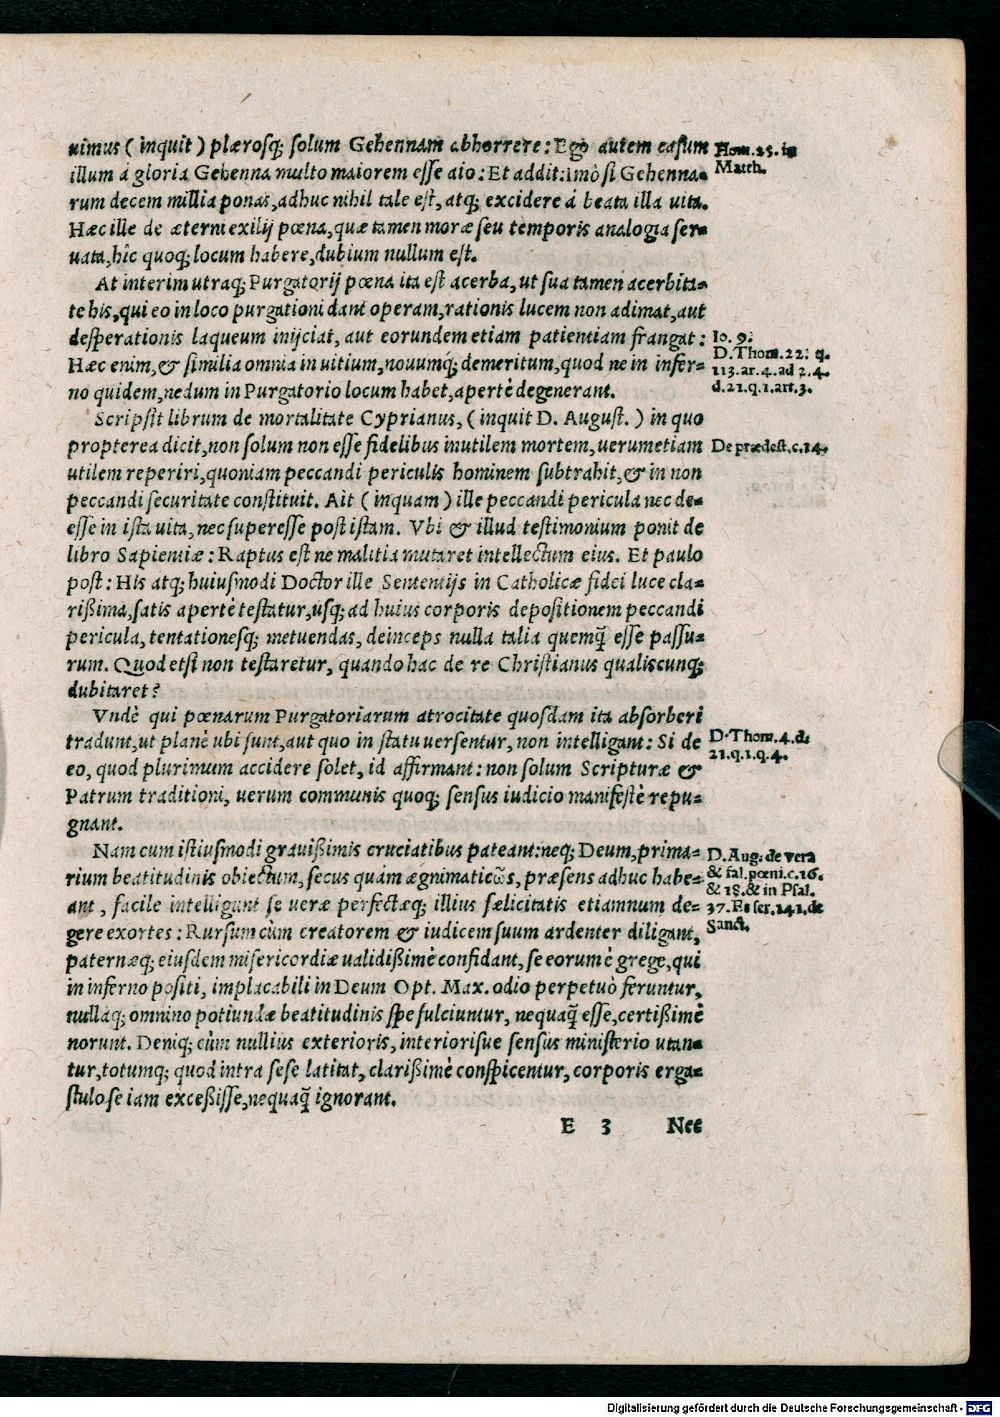 uimus ( inquit ) plærosq; solum Gehennam abhorrere : Ego autem casum
illum á gloria Gehenna multo maiorem esse aio : Et addit: imò si Gehenna-
rum decem millia ponas, adhuc nihil tale est, atq; excidere á beata illa uita.
Hæc ille de æterni exilij pœna, quæ tamen moræ seu temporis analogia ser-
uata, hîc quoq; locum habere, dubium nullum est.
Hom. 25. in
Matth.
At interim utraq; Purgatorij pœna ita est acerba, ut sua tamen acerbita-
te his, qui eo in loco purgationi dant operam, rationis lucem non adimat, aut
desperationis laqueum inijciat, aut eorundem etiam patientiam frangat :
Hæc enim, & similia omnia in uitium, nouumq; demeritum, quod ne in infer-
no quidem, nedum in Purgatorio locum habet, apertè degenerant.
Io. 9.
D. Thom. 22: q.
113. ar. 4. ad 2. 4.
d. 21. q. 1. art. 3.
Scripsit librum de mortalitate Cyprianus, ( inquit D. August. ) in quo
propterea dicit, non solum non esse fidelibus inutilem mortem, uerumetiam
utilem reperiri, quoniam peccandi periculis hominem subtrahit, & in non
peccandi securitate constituit. Ait ( inquam ) ille peccandi pericula nec de-
esse in ista uita, nec superesse post istam. Vbi & illud testimonium ponit de
libro Sapientiæ : Raptus est ne malitia mutaret intellectum eius. Et paulo
post : His atq; huiusmodi Doctor ille Sententijs in Catholicæ fidei luce cla-
rißima, satis apertè testatur, usq; ad huius corporis depositionem peccandi
pericula, tentationesq; metuendas, deinceps nulla talia quemq̃ esse passu-
rum. Quod etsi non testaretur, quando hac de re Christianus qualiscunq;
dubitaret?
De prædest. c. 14.
Vndè qui pœnarum Purgatoriarum atrocitate quosdam ita absorberi
tradunt, ut planè ubi sunt, aut quo in statu uersentur, non intelligant : Si de
eo, quod plurimum accidere solet, id affirmant : non solum Scripturæ &
Patrum traditioni, uerum communis quoq; sensus iudicio manifestè repu-
gnant.
D. Thom. 4. d.
21. q. 1. q. 4.
Nam cum istiusmodi grauißimis cruciatibus pateant: neq; Deum, prima-
rium beatitudinis obiectum, secus quàm ægnimaticω̃s, præsens adhuc habe-
ant , facile intelligunt se ueræ perfectæq; illius fælicitatis etiamnum de-
gere exortes : Rursum cùm creatorem & iudicem suum ardenter diligant,
paternæq; eiusdem misericordiæ ualidißimè confidant, se eorum è grege, qui
in inferno positi, implacabili in Deum Opt. Max. odio perpetuò feruntur,
nullaq; omnino potiundæ beatitudinis spe fulciuntur, nequaq̃ esse, certißimè
norunt. Deniq; cùm nullius exterioris, interiorisue sensus ministerio utan-
tur, totumq; quod intra sese latitat, clarißimè conspicentur, corporis erga-
stulo se iam exceßisse, nequaq̃ ignorant.
D. Aug: de vera
& fal. pœni. c. 16.
& 18. & in Psal.
37. Et ser. 141. de
Sanct.
E 3 Nec
Digitalisierung gefördert durch die Deutsche Forschungsgemeinschaft - DFG